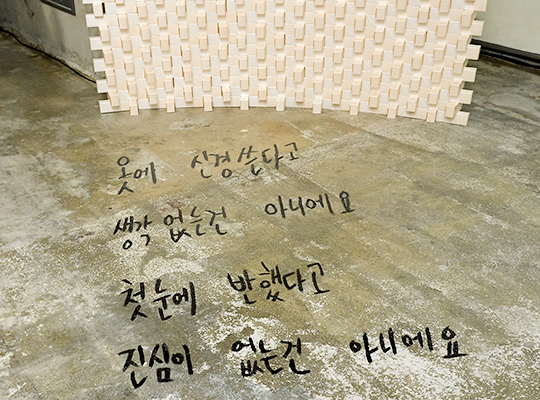 옷에 신경쓴다고
생각 없는건 아니에요
첫눈에 반했다고
진심이 없는건 아니에요